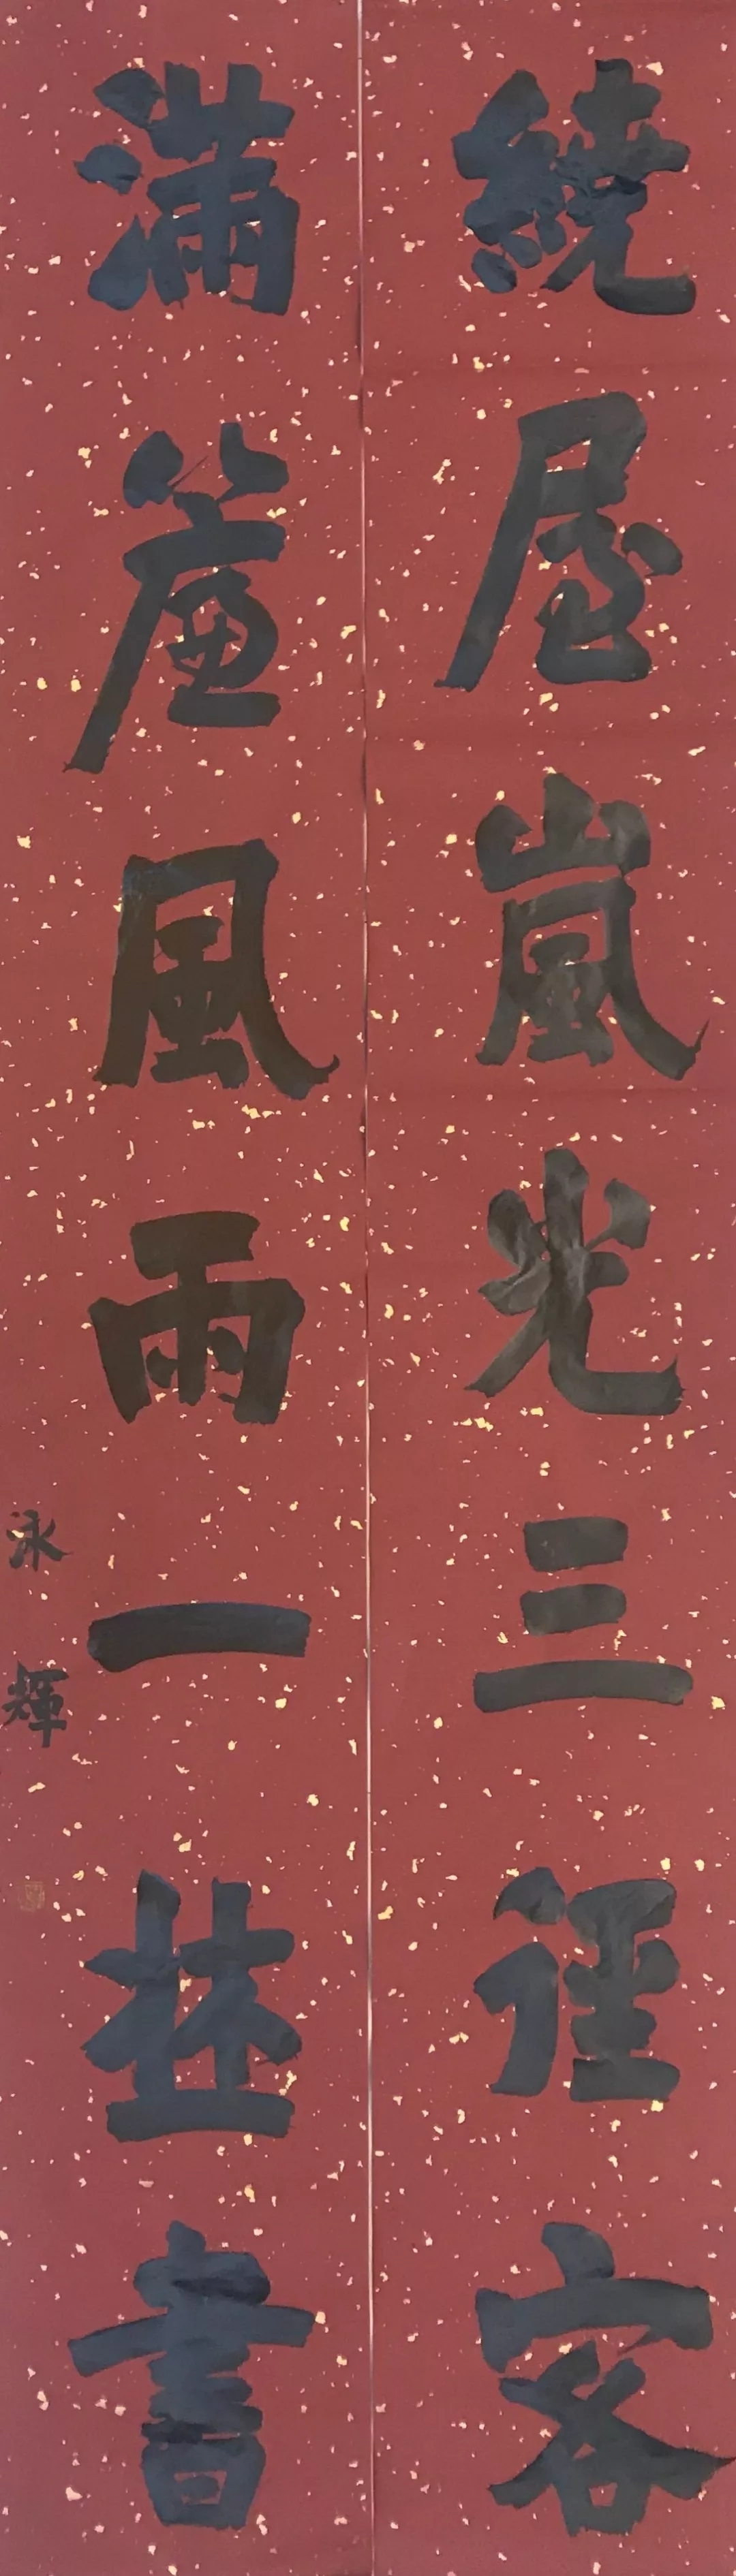 繞屋嵐光三徑客
滿簾風雨一書
泳輝